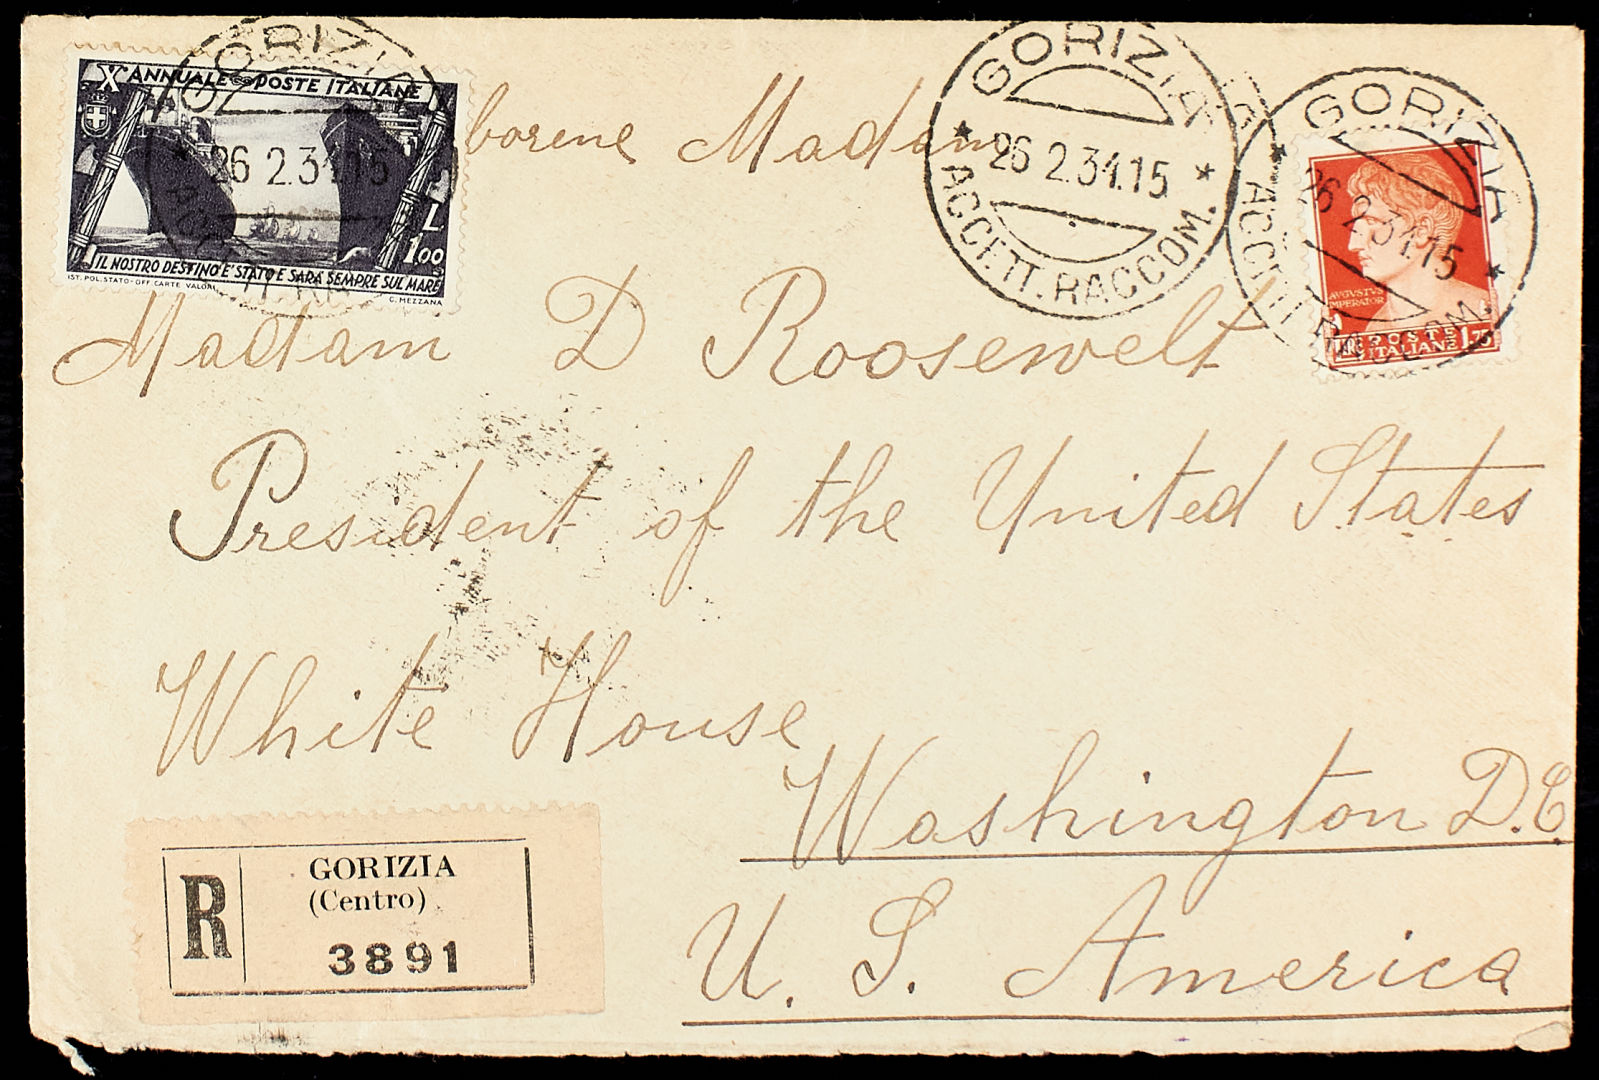 X ANNUALE POSTE ITALIANE
L. 1.00
IL NOSTRO DESTINO E' STATO E SARA SEMPRE SUL MARE
IST. POL. STATO-OFF. CARTE VALORI
C. MEZZANA
GORIZIA
26 2.34.15
GORIZIA
26 2.34.15
ACCETT. RACCOM.
GORIZIA
26 2.34.15
ACCETT. RACCOM.
AVGVSTVS
IMPERATOR
LIRE POSTE 1.75
ITALIANE
borene Madam
Madam D Roosewelt
President of the United States
White House
Washington D.C.
U. S. America
R
GORIZIA
(Centro)
3891